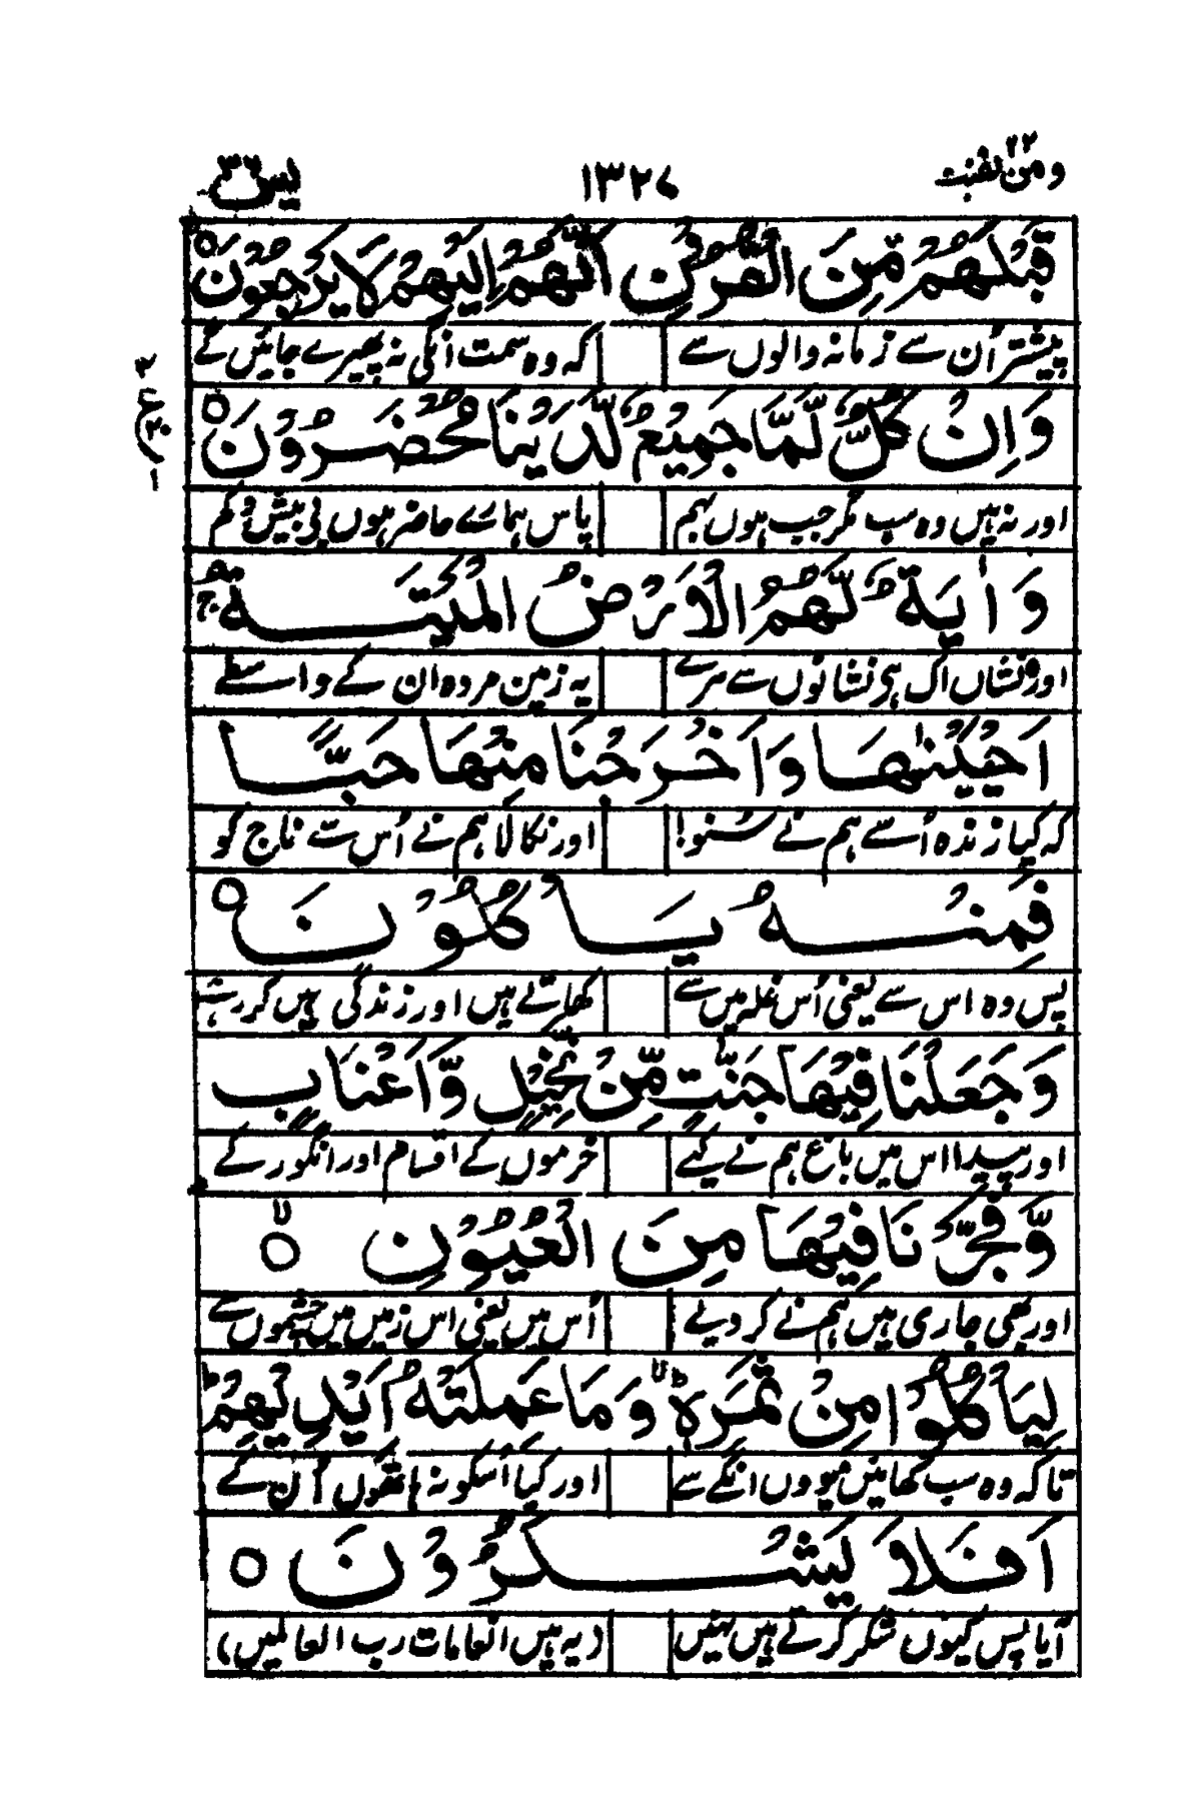 ومن یقنت ۲۲
۱۳۲۷
یٰسٓ ۳۶
قَبْلَهُمْ مِّنَ الْقُرُوْنِ اَنَّهُمْ اِلَیْهِمْ لَا یَرْجِعُوْنَ ۝
پیشتر اُن سے زمانہ والوں سے کہ وہ سمت انکی نہ پھیرے جائیں گے
وَاِنْ كُلٌّ لَّمَّا جَمِیْعٌ لَّدَیْنَا مُحْضَرُوْنَ ۝
اور نہ ہیں وہ سب مگر جب ہوں بہم پاس ہمارے حاضر ہوں
وَاٰیَةٌ لَّهُمُ الْاَرْضُ الْمَیْتَةُ ۚ
اور نشاں اک ہی نشانوں سے مرے یہ زمین مردہ ان کے واسطے
اَحْیَیْنٰهَا وَاَخْرَجْنَا مِنْهَا حَبًّا
کہ کیا زندہ اُسے ہم نے سنو! اور نکالا ہم نے اُس سے ناج کو
فَمِنْهُ یَاْكُلُوْنَ ۝
پس وہ اس سے یعنی اُس غلہ میں سے کھاتے ہیں اور زندگی ہیں کر رہے
وَجَعَلْنَا فِیْهَا جَنّٰتٍ مِّنْ نَّخِیْلٍ وَّاَعْنَابٍ
اور پیدا اس میں باغ ہم نے کیے خرموں کے اقسام اور انگور کے
وَّفَجَّرْنَا فِیْهَا مِنَ الْعُیُوْنِ ۝ۙ
اور بھی جاری ہیں ہم نے کر دیے اُس میں یعنی اس زمیں میں چشموں سے
لِیَاْكُلُوْا مِنْ ثَمَرِهٖ ۙ وَمَا عَمِلَتْهُ اَیْدِیْهِمْ ؕ
تاکہ وہ سب کھائیں میووں انکے سے اور کیا اُسکو نہ ہاتھوں اُن کے
اَفَلَا یَشْكُرُوْنَ ۝
آیا پس کیوں شکر کرتے ہیں نہیں (یہ ہیں انعامات رب العالمیں)